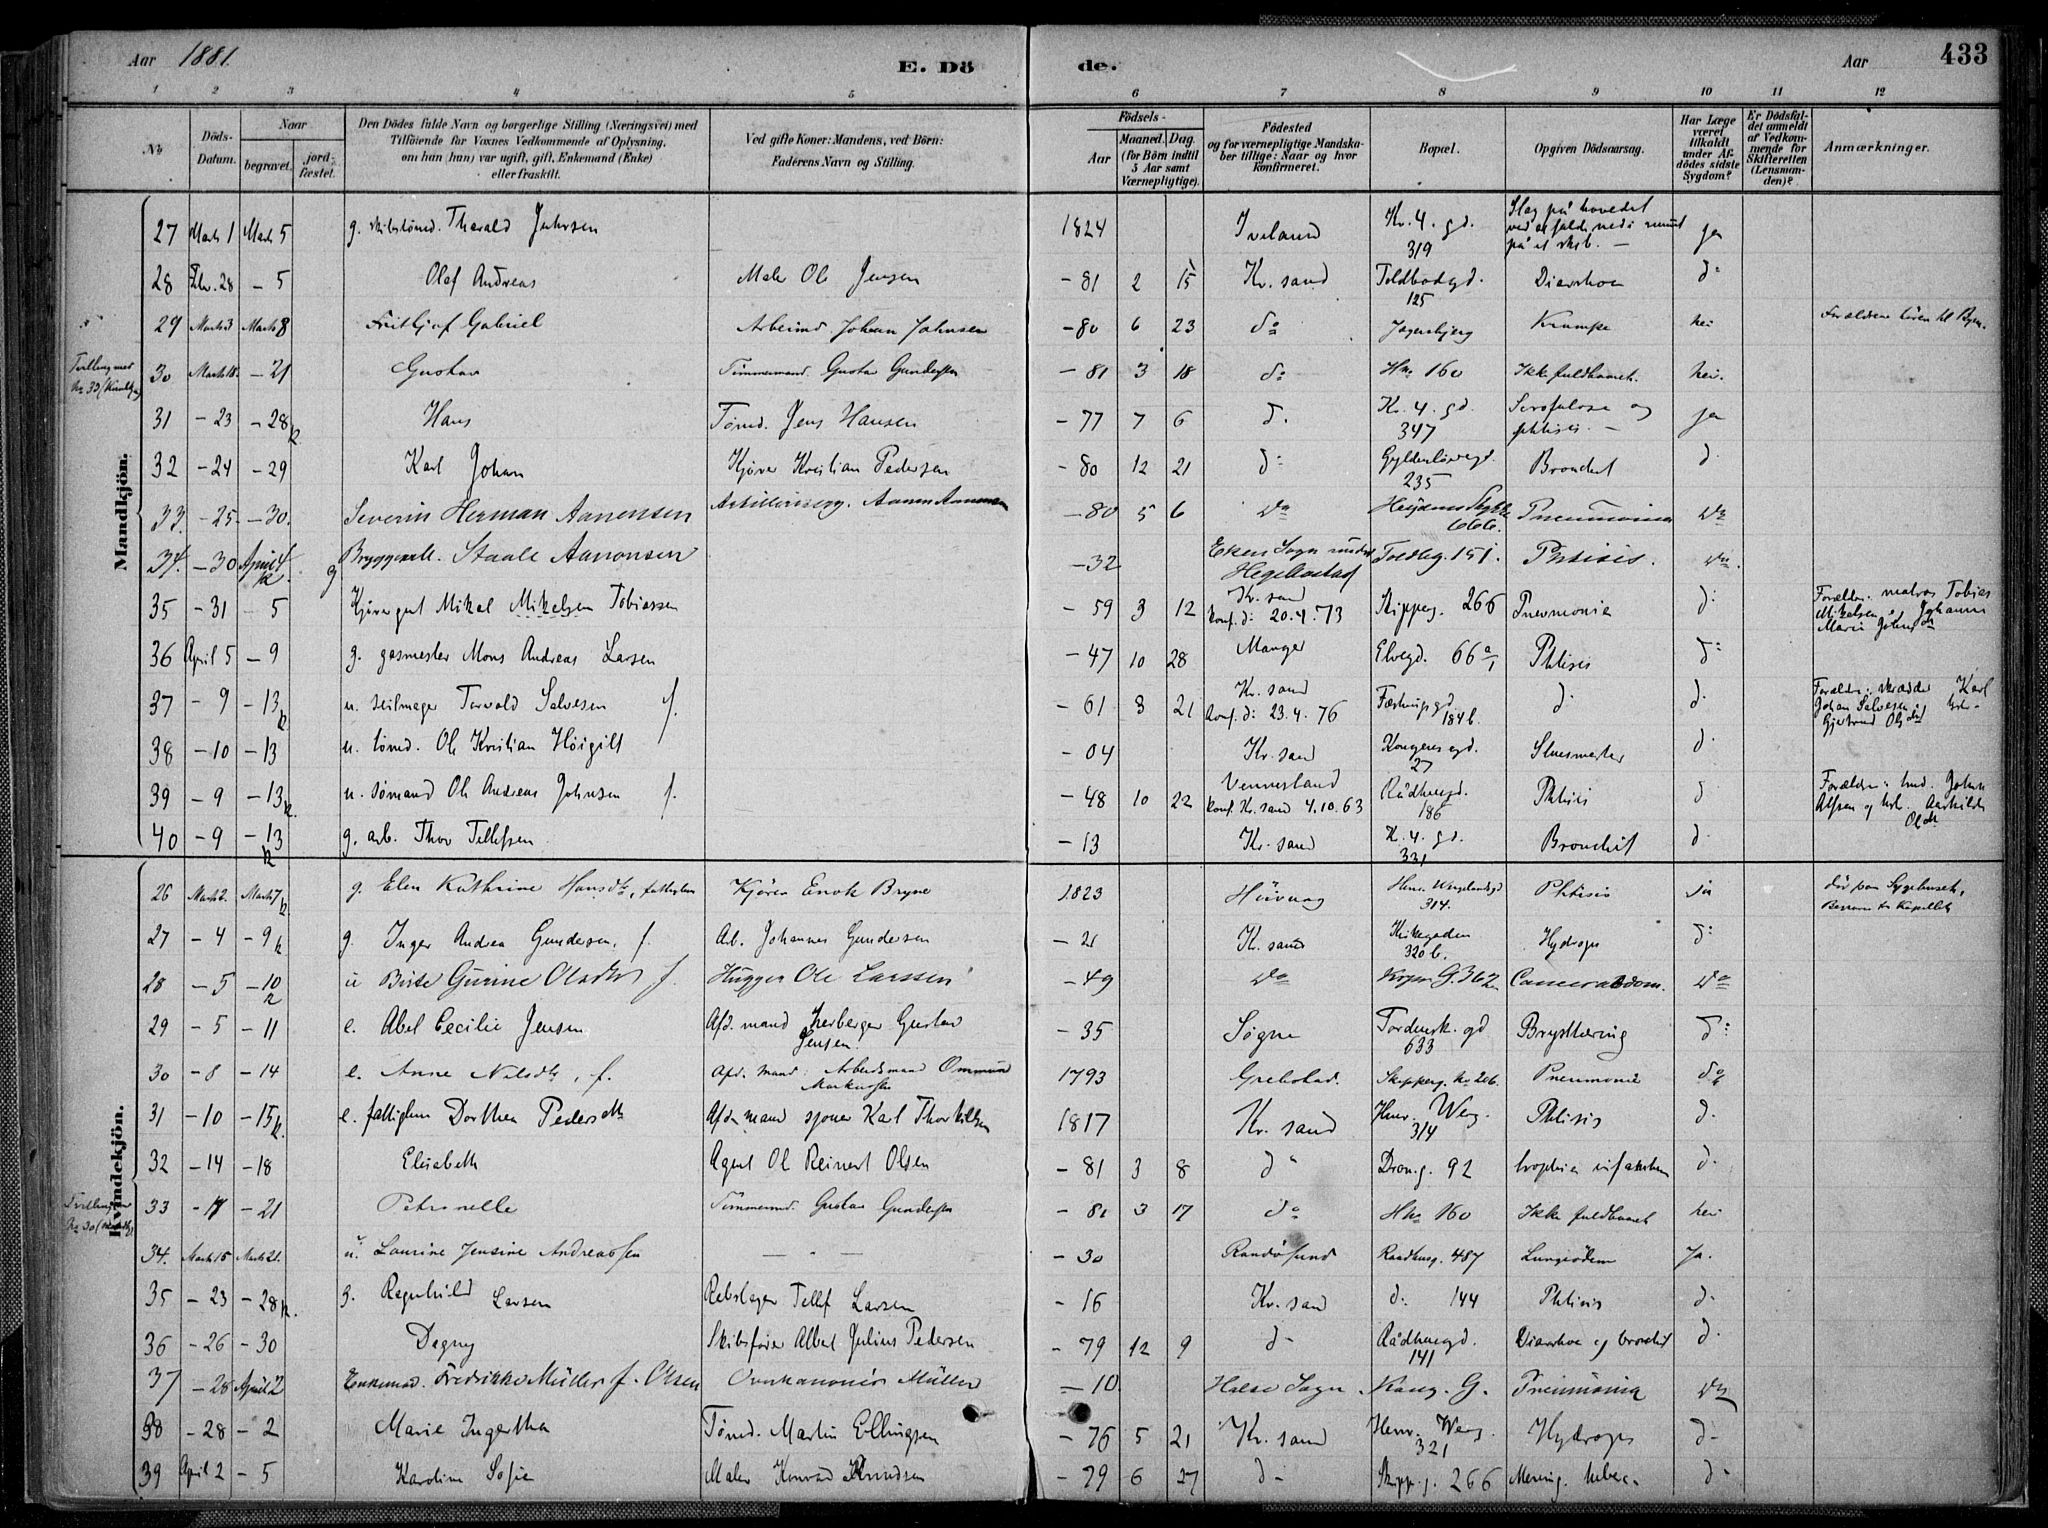 Aar 1881.
E. Dö
de.
Aar
433
1 2 3 4 5 6 7 8 9 10 11 12
No
Döds-Datum.
Naar
begravet.
jord-fæstet.
Den Dödes fulde Navn og borgerlige Stilling (Næringsvei) med
Tilföiende for Voxnes Vedkommende af Oplysning,
om han (hun) var ugift, gift, Enkemand (Enke)
eller fraskilt.
Ved gifte Koner: Mandens, ved Börn:
Faderens Navn og Stilling.
Födsels-
Aar
Maaned. Dag.
(for Börn indtil
5 Aar samt
Værnepligtige).
Födested
og for værnepligtige Mandska-
ber tillige: Naar og hvor
konfirmeret.
Bopæl.
Opgiven Dödsaarsag.
Har Læge
været
tilkaldt
under Af-
dödes sidste
Sygdom?
Er Dødsfal-
det anmeldt
af Vedkom-
mende for
Skifteretten
(Lensman-
den)?
Anmærkninger.
Mandkjön.
27 Marts 1 Marts 5 g. Tharald 1824 Iveland Kr. 4. gd. 319 Slag på hovedet ved at falde ned i på et skib. — ja
28 Febr. 28 – 5 Olaf Andreas Maler Ole Jensen – 81 2 15 Kr. sand Toldbodgd. 125 Diarrhoe do
29 Marts 3 Marts 8 Frithjof Gabriel Arbeimd. Johan Johnsen – 80 6 23 do Jegersbjerg Krampe nei Forældrene hører til Byen.
Tvilling med No 33 (Kvindkj.)
30 Marts 18 – 21 Gustav Tømmermand. Gustav Gundersen – 81 3 18 do HNo 160 Ikke fuldbaaret. nei.
31 – 23 – 28 k Hans Tømd. Jens Hansen – 77 7 6 do Kr. 4. gd. 347 Scrofulose og phtisis. — ja
32 – 24 – 29 Karl Johan Kjører Kristian Pedersen – 80 12 21 do Gyldenløvegd. 235 Bronchit do
33. – 25 – 30. Severin Herman Aanensen – 80 5 6 Do 666. Pneumonia Do
34. – 30 April 4 k g Staale Aanonsen – 32 Eken Sogn under Hegebostad Toldbg. 151. Phtisis. Do.
35 – 31 – 5 Kjøregut Mikal Mikalsen Tobiassen – 59 3 12 Kr. sand konf. do 20.4.73 Skipperg. 266 Pnevmonie do Forældre: matros Tobias Mikelsen Johanne Marie
36 April 5 – 9 g. gasmester Mons Andreas Larsen – 47 10 28 Manger Elvegd. 66 a/1 Phtisis do
37 – 9 – 13 k u. seilmager Torvald Salvesen f. – 61 8 21 Kr. sand Konf. do 23.4.76 Festningsgd. 184 b. do do Forældre: skrædder Karl Johan Salvesen Gjertrud Olsdt
38 – 10 – 13 u. tømd. Ole Kristian Høigilt – 04 Kr. sand Kongensgd. 27 do
39 – 9 – 13 k. u. sømand Ole Andreas Johnsen f. – 48 10 22 Vennesland konf. Kr. sand 4.10.63 Rådhusgd. 186 Phtisis do Forældre: hmd. John Alfsen og Aashilde Olsdt
40 – 9 – 13 k g. arb. Thor Tellefsen – 13 Kr. sand K. 4. gd. 331 Bronchit do
Kvindekjön.
26 Marts 2. Marts 7 k. g. Elen Kathrine Hansdtr, fattiglem Kjører Enok Bryne 1823 Høivaag Henr. Wergelandsgd 314. Phtisis ja død paa Sygehuset,
27 – 4 – 9 k g. Inger Andrea Gundersen, f. Arb. Johannes Gundersen – 21 Kr. sand Kirkegaden 320 b. Hydrops do
28 – 5 – 10 u Birte Gurine Olsdtr f. Hugger Ole Larssen – 49 Do G. 362 Cancer abdom. Do
29 – 5 – 11 e. Abel Cecilie Jensen Afd. mand Gustav Jensen – 35 Søgne Tordensk. gd 633 Brysttæring do
30 – 8 – 14 e. Anne Nilsdtr, f. Afd. mand: Arbeidsmand Ommund Markussen 1793 Grebstad. Skipperg. No 206. Pneumonie do
31 – 10 – 15 k. e. fattiglem Dorthea Pedersdtr Afd. mand Karl Thorkilsen 1817 Kr. sand Henr. Werg. 314 Phtisis do
32 – 14 – 18 Elisabeth Agent Ole Reinert Olsen – 81 3 8 do Dronng. 92 do
Tvilling No 30 (Mandkj.)
33 – 17 – 21 Petronelle Tømmermd. Gustav Gundersen – 81 3 17 do HNo 160 Ikke fuldbaaret nei
34. Marts 15 Marts 21. u. Laurine Jensine Andreassen — — — – 30 Randøsund Raadhusg. 487 Lungeødem Ja.
35 – 23 – 28 k. g. Ragnhild Larsen Rebslager Tellef Larsen – 16 Kr. sand do 144 Phtisis do
36 – 26 – 30 Dagny Skibsfører Albert Julius Pedersen – 79 12 9 do Rådhusgd. 141 Diarrhoe og bronchit do
37 – 28 April 2 Enkemad. Fredrikke Müller f. Olsen Overkanonér Müller – 10. Halse Sogn. Kong. G. Pneumonia Do
38 – 28 – 2 Marie Ingertha Tømd. Martin Ellingsen – 76 5 21 Kr. sand Henr. Werg. 321 Hydrops do
39 April 2 – 5 Karoline Sofie Maler Konrad Knudsen – 79 6 27 do Skipp.g. 266 Mening. tuberc. do